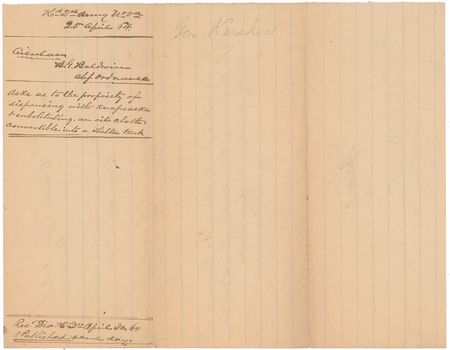 Hd Qrs Army N Va
25 April 64
Circular
B. G. Baldwin
Chf Ordnance
Asks as to the propriety of
dispensing with Knapsacks
& substituting an oil cloth
convertible into a shelter tent
Recd Div H Qrs April 30, 64
& Published same day.
Gen Kershaw